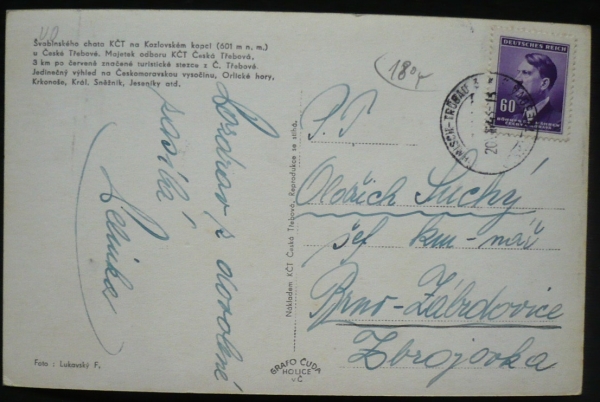 Škubínského chata KČT na Kozlovském kopci (601 m n. m.)
u České Třebové. Majetek odboru KČT Česká Třebová.
3 km po červeně značené turistické stezce z Č. Třebové.
Jedinečný výhled na Českomoravskou vysočinu, Orlické hory,
Krkonoše, Král. Sněžník, Jeseníky atd.
Pozdrav s dovolené
posílá
Lenka
Foto : Lukavský F.
Nákladem KČT Česká Třebová. Reprodukce se stíhá.
GRAFO ČUDA
HOLICE
v Č
180
DEUTSCHES REICH
60
BÖHMEN u. MÄHREN
ČECHY a MORAVA
P. T.
Oldřich Suchý
šef
Brno-Zábrdovice
Zbrojovka